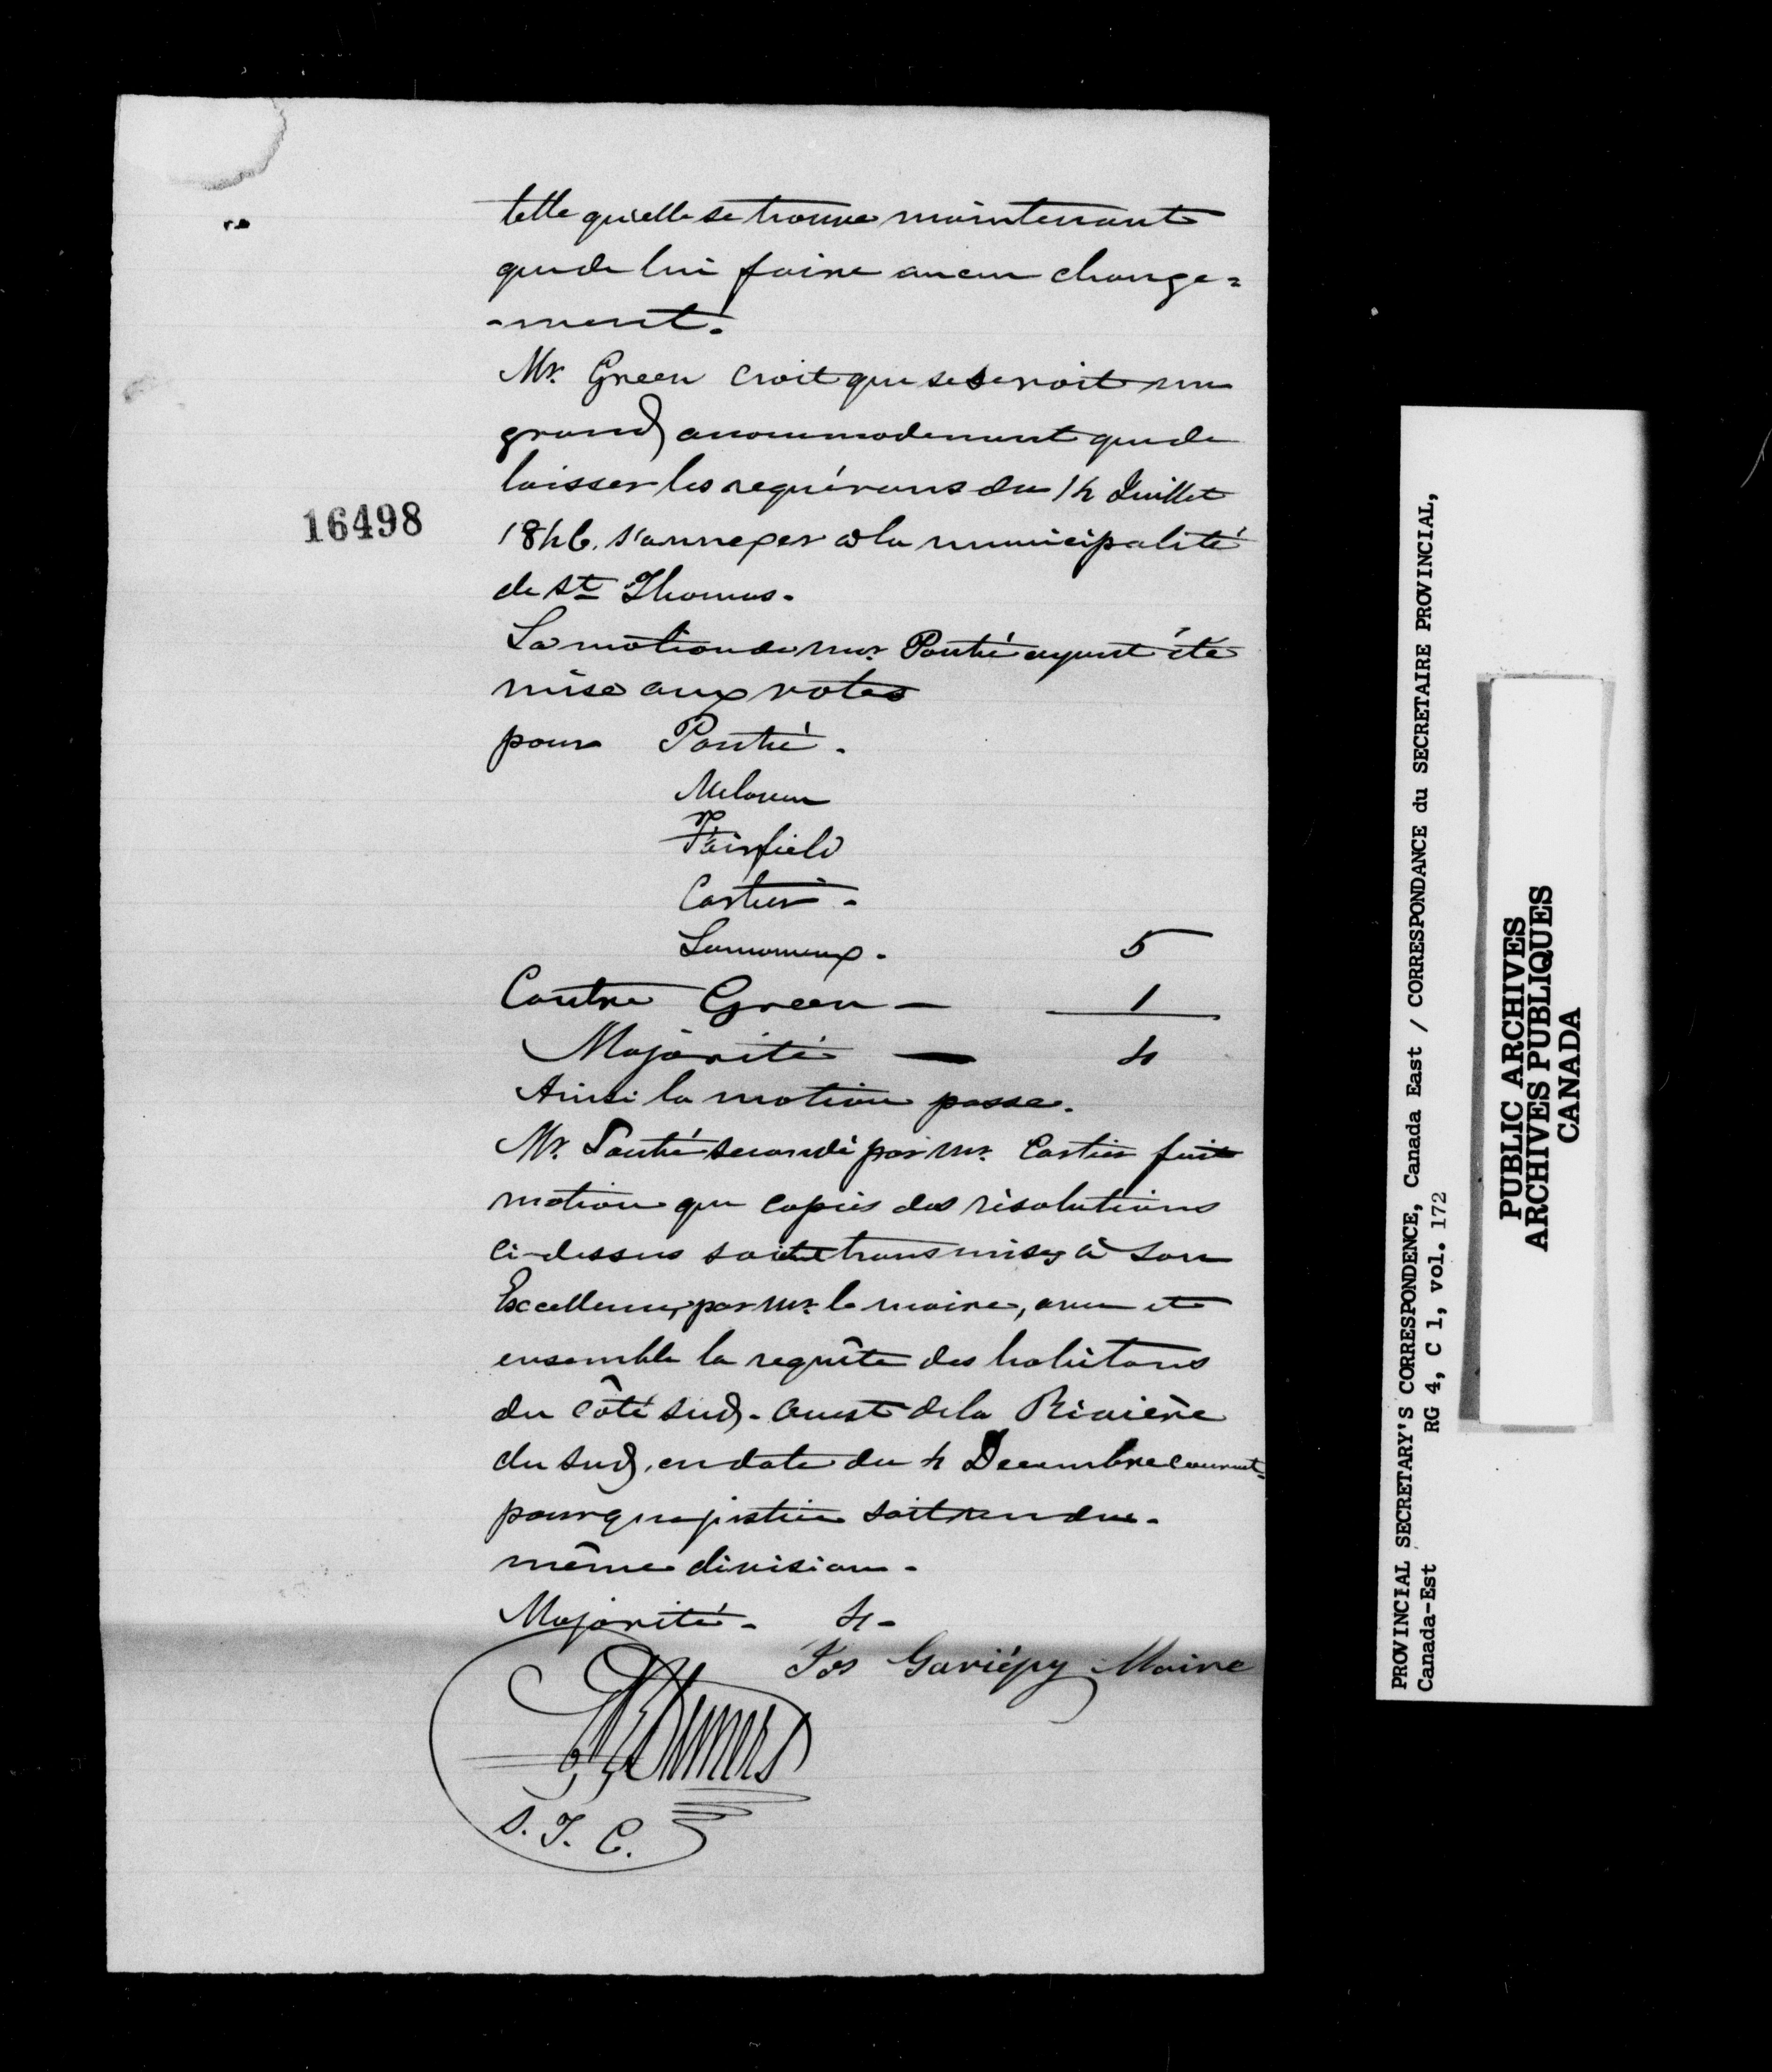 telle qu'elle se trouve maintenant
que de lui faire aucun change=
-ment.
Mr. Green croit que se seroit un
grand accommodement que de
laisser les requérans du 14 Juillet
16498
1846. s'annexer à la municipalité
de St Thomas.
La motion de Mr. Pontié ayant été
mise aux votes
pour Pontié.
Fairfield
Cartier.
Lamoureux. 5
Contre Green — 1
Majorité — 4
Ainsi la motion passe.
Mr. Pontié secondé par Mr. Cartier fait
motion que copies des résolutions
ci-dessus soient transmises à Son
Excellence, par Mr. le maire, avec et
ensemble la requête des habitans
du côté sud-ouest de la Rivière
du Sud, en date du 4 Decembre courant
pour que justice soit rendue.
même division.
Majorité. 4-
Jos Gariépy Maire
S. T. C.
PROVINCIAL SECRETARY'S CORRESPONDENCE, Canada East / CORRESPONDANCE du SECRETAIRE PROVINCIAL,
Canada-Est RG 4, C 1, vol. 172
PUBLIC ARCHIVES
ARCHIVES PUBLIQUES
CANADA